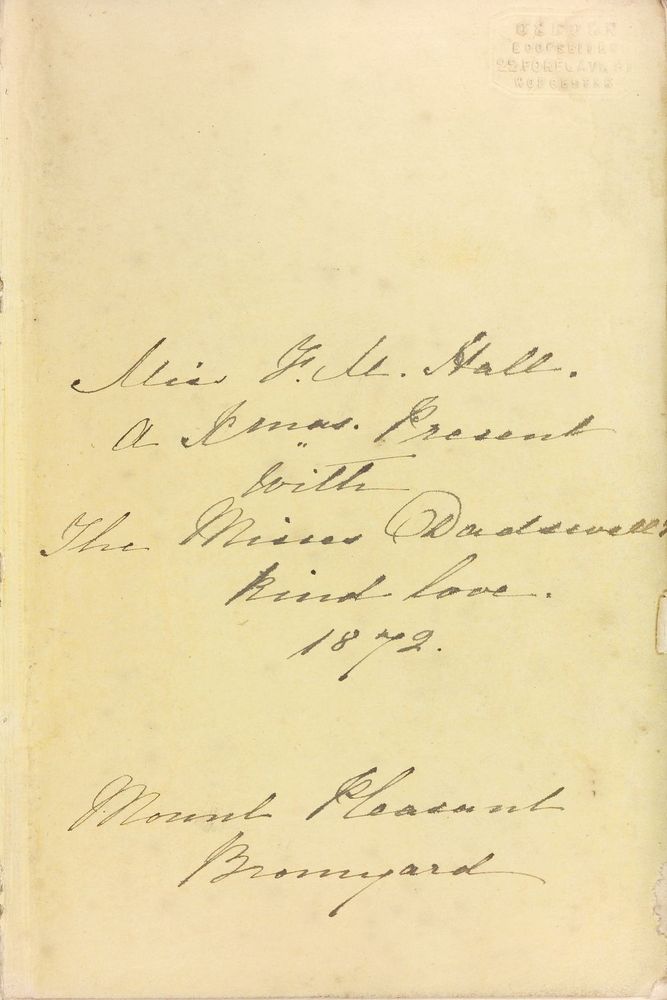 BOOKSELLER
22 FOREGATE ST
WORCESTER
Miss F. M. Hall.
A Xmas. Present
With
The Misses Dadswell's
kind love.
1872.
Mount Pleasant
Bromyard